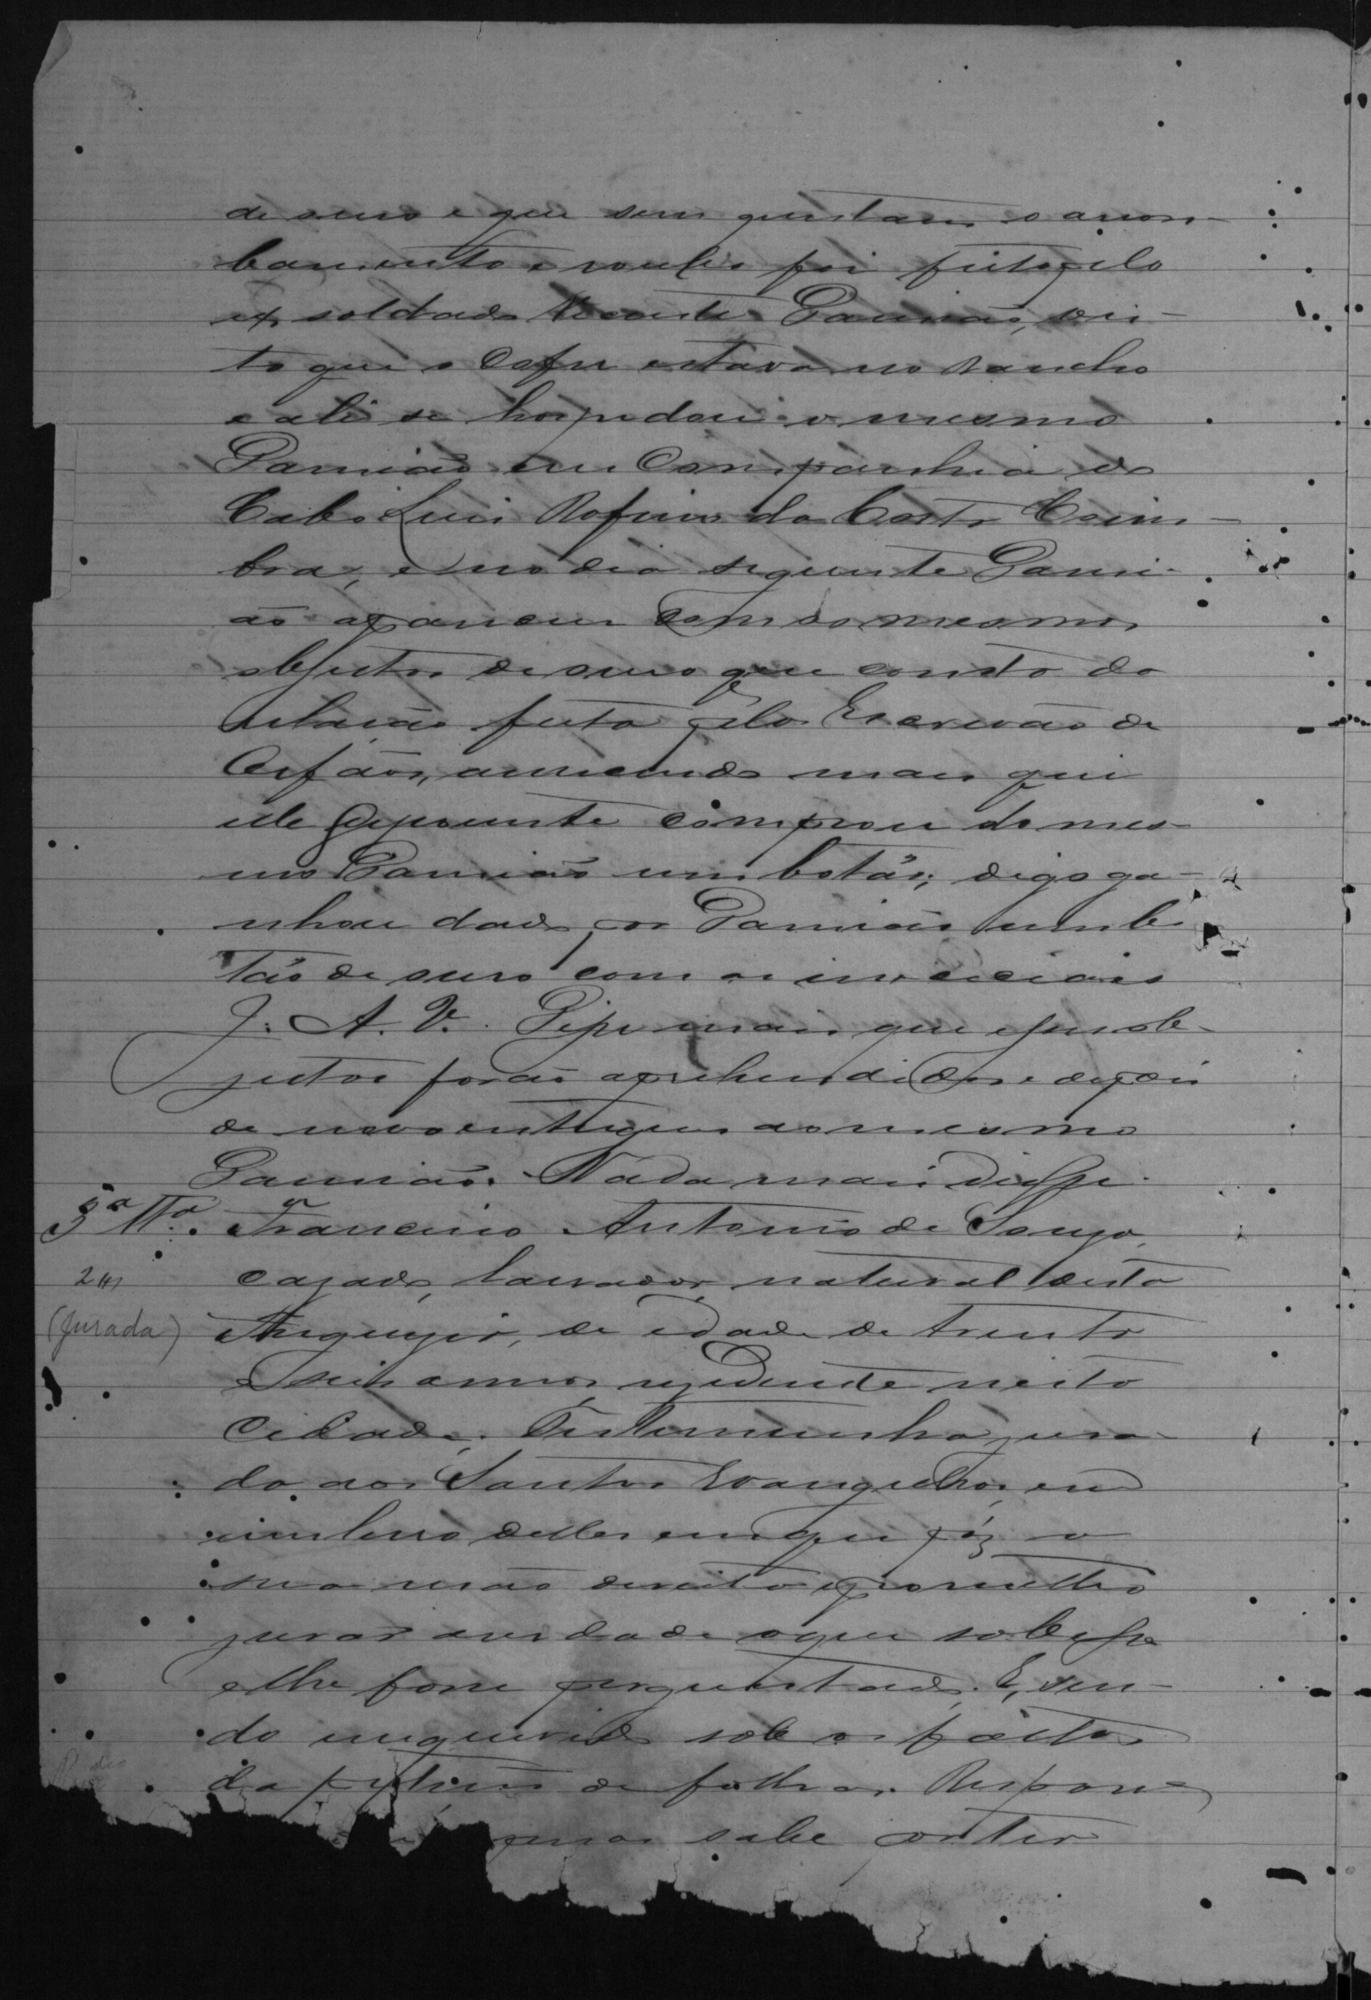 de ouro e que sem questam o arrom-
bamento e roubo foi feito pelo
ex soldado Vicente Damião, vis-
to que o Cofre estava no rancho
e ali se hospedou o mesmo
Damião em Companhia do
Cabo Luis Rofino da Costa Coim-
bra, e no dia seguinte Dami-
ão apareceu com os mesmos
objectos de ouro que consta da
relação feita pelo Escrivão de
Orfãos, accrescendo mais que
elle depoente comprou do mes-
mo Damião um botão; digo ga-
nhou dado por Damião um bo-
tão de ouro com as iniciciais
J. A. V. Disse mais que esses ob-
jectos forão aprehendidos e depois
de novo entregues ao mesmo
Damião. Nada mais disse.
3ª Ttª. Francisco Antonio de Souza,
2ª
cazado, lavrador, natural desta
(Jurada)
Freguezia, de edade de trinta
e seis annos, rezidente nesta
Cidade. Testemunha jura-
da aos Santos Evangelhos, em
um livro delles em que pôz a
sua mão direita e prometteo
jurar verdade o que soubesse
e lhe fosse perguntado. E, sen-
do inquerido sob os factos
da petição de folhas. Respon-
sabe